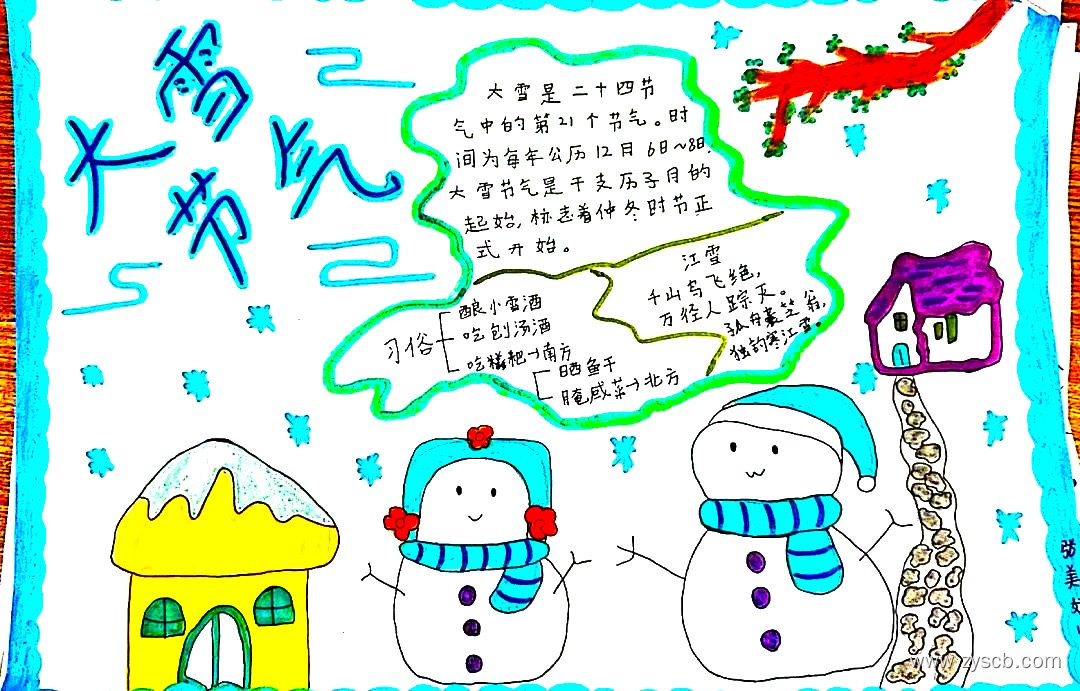 大雪节气
大雪是二十四节
气中的第21个节气。时
间为每年公历12月6日~8日.
大雪节气是干支历子月的
起始,标志着仲冬时节正
式开始。
江雪
千山鸟飞绝,
万径人踪灭。
孤舟蓑笠翁,
独钓寒江雪。
习俗
酿小雪酒
吃刨汤酒
吃糍粑→南方
晒鱼干
腌咸菜→北方
张美
www.zyscb.com